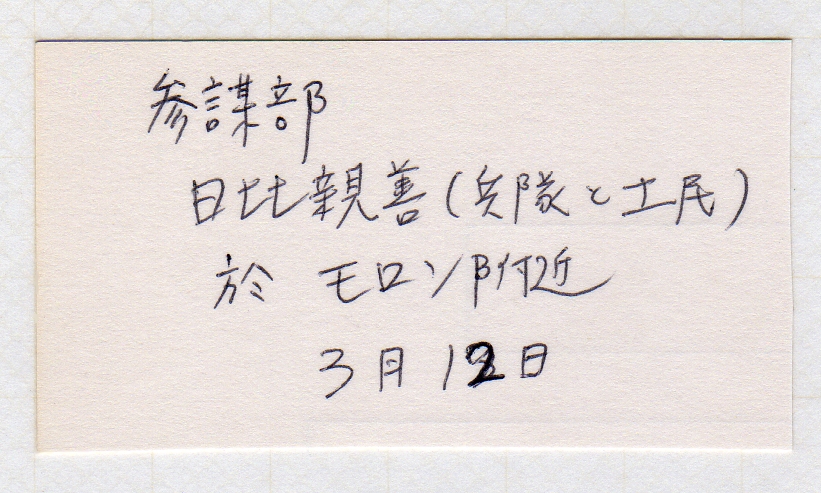 参謀部
日比親善(兵隊と土民)
於 モロン附近
3月12日